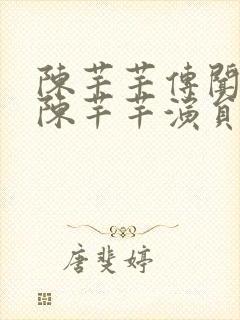 陳芊芊傳聞
陳芊芊演員
唐斐婷